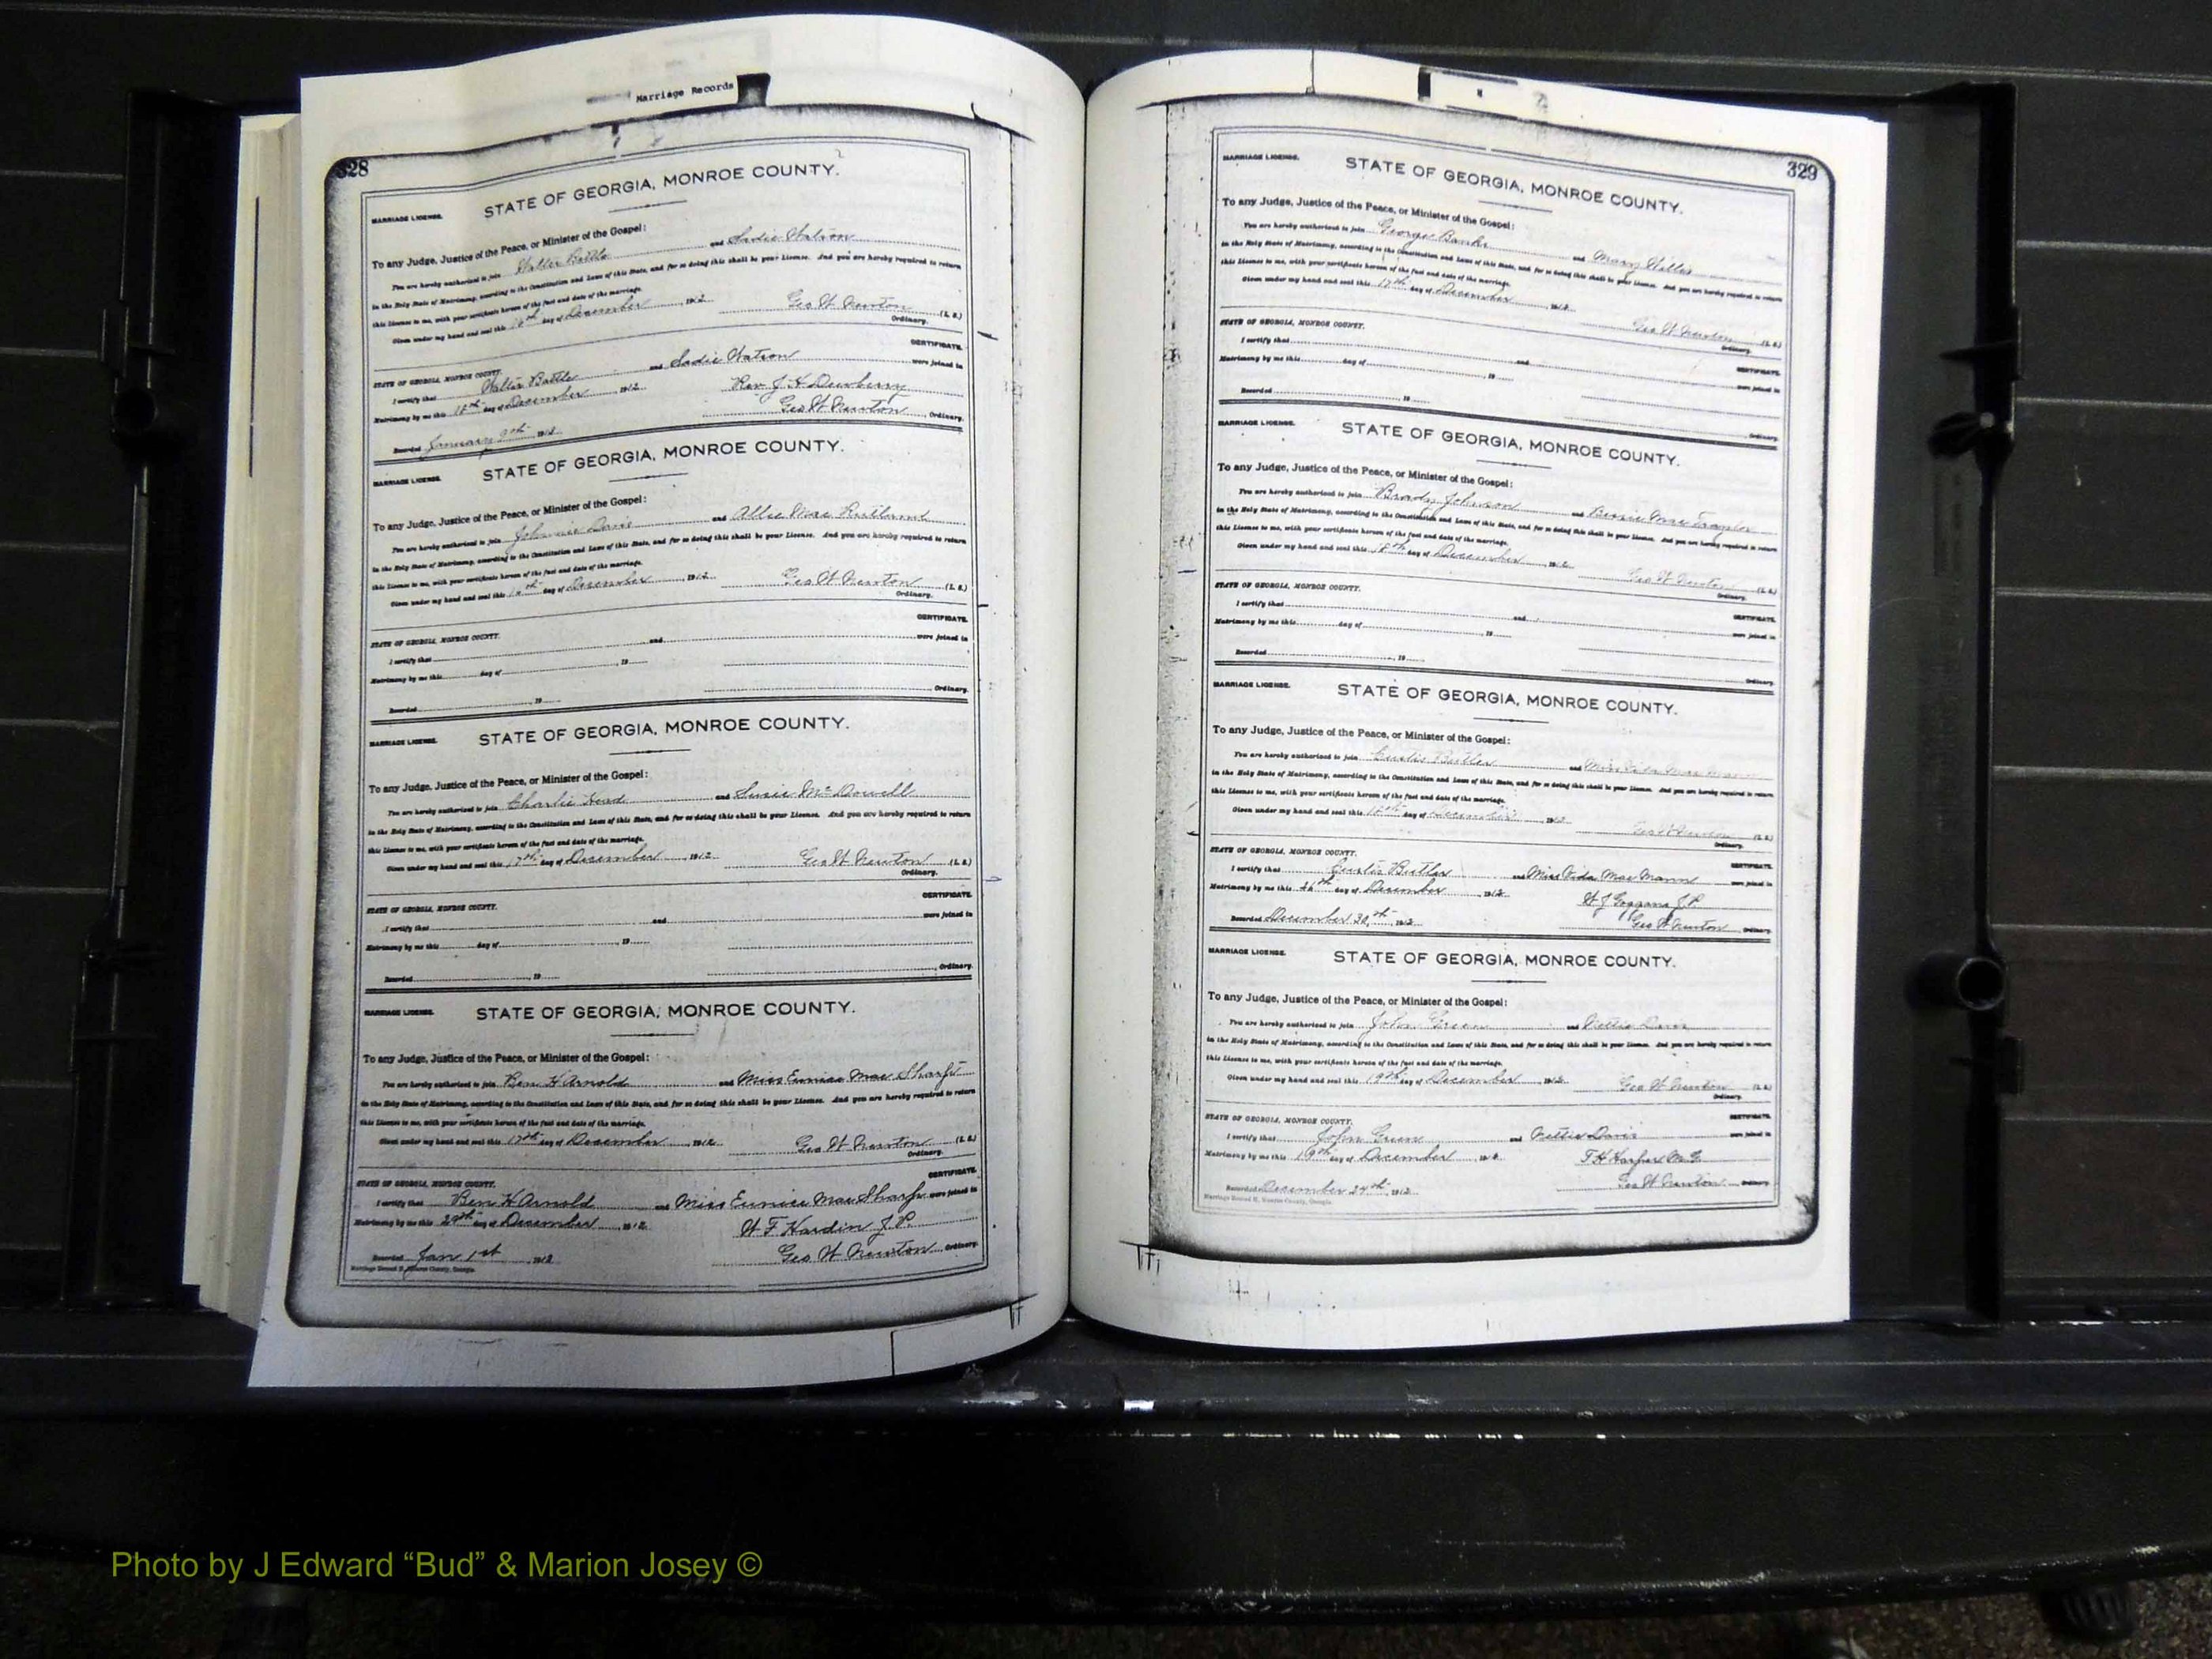 Marriage Records
328
STATE OF GEORGIA, MONROE COUNTY.
MARRIAGE LICENSE.
To any Judge, Justice of the Peace, or Minister of the Gospel:
You are hereby authorized to join Walter Battle and Sadie Watson
in the Holy State of Matrimony, according to the Constitution and Laws of this State, and for so doing this shall be your License. And you are hereby required to return
this License to me, with your certificate hereon of the fact and date of the marriage.
Given under my hand and seal this day of December, 1912
Geo W Newton (L. S.)
Ordinary.
CERTIFICATE.
STATE OF GEORGIA, MONROE COUNTY.
I certify that Walter Battle and Sadie Watson were joined in
Matrimony by me this 18th day of December, 1912. Rev J H Dewberry
Recorded January 9th 191 Geo W Newton, Ordinary.
STATE OF GEORGIA, MONROE COUNTY.
MARRIAGE LICENSE.
To any Judge, Justice of the Peace, or Minister of the Gospel:
You are hereby authorized to join Johnnie Davis and Allie Mae Rutland
in the Holy State of Matrimony, according to the Constitution and Laws of this State, and for so doing this shall be your License. And you are hereby required to return
this License to me, with your certificate hereon of the fact and date of the marriage.
Given under my hand and seal this day of December, 1912 Geo W Newton (L. S.)
Ordinary.
CERTIFICATE.
STATE OF GEORGIA, MONROE COUNTY.
I certify that and were joined in
Matrimony by me this day of , 19
Recorded , 19 Ordinary.
STATE OF GEORGIA, MONROE COUNTY.
MARRIAGE LICENSE.
To any Judge, Justice of the Peace, or Minister of the Gospel:
You are hereby authorized to join Charlie Head and Susie McDowell
in the Holy State of Matrimony, according to the Constitution and Laws of this State, and for so doing this shall be your License. And you are hereby required to return
this License to me, with your certificate hereon of the fact and date of the marriage.
Given under my hand and seal this 17th day of December, 1912 Geo W Newton (L. S.)
Ordinary.
CERTIFICATE.
STATE OF GEORGIA, MONROE COUNTY.
I certify that and were joined in
Matrimony by me this day of , 19
Recorded , 19 , Ordinary.
MARRIAGE LICENSE. STATE OF GEORGIA, MONROE COUNTY.
To any Judge, Justice of the Peace, or Minister of the Gospel:
You are hereby authorized to join Ben H Arnold and Miss Eunice Mae Sharp
in the Holy State of Matrimony, according to the Constitution and Laws of this State, and for so doing this shall be your License. And you are hereby required to return
this License to me, with your certificate hereon of the fact and date of the marriage.
Given under my hand and seal this 17th day of December, 1912. Geo W Newton (L. S.)
Ordinary.
CERTIFICATE.
STATE OF GEORGIA, MONROE COUNTY.
I certify that Ben H Arnold and Miss Eunice Mae Sharp were joined in
Matrimony by me this day of December, 1912 W F Hardin J.P.
Recorded Jan 1st, 191 Geo W Newton Ordinary.
Marriage Record H, Monroe County, Georgia.
329
MARRIAGE LICENSE. STATE OF GEORGIA, MONROE COUNTY.
To any Judge, Justice of the Peace, or Minister of the Gospel:
You are hereby authorized to join George Banks and Mary Willis
in the Holy State of Matrimony, according to the Constitution and Laws of this State, and for so doing this shall be your License. And you are hereby required to return
this License to me, with your certificate hereon of the fact and date of the marriage.
Given under my hand and seal this 17th day of December, 1912. Geo W Newton (L. S.)
Ordinary.
STATE OF GEORGIA, MONROE COUNTY.
CERTIFICATE.
I certify that and were joined in
Matrimony by me this day of , 19
Recorded , 19 Ordinary.
MARRIAGE LICENSE. STATE OF GEORGIA, MONROE COUNTY.
To any Judge, Justice of the Peace, or Minister of the Gospel:
You are hereby authorized to join Brady Johnson and Bessie Mae Traylor
in the Holy State of Matrimony, according to the Constitution and Laws of this State, and for so doing this shall be your License. And you are hereby required to return
this License to me, with your certificate hereon of the fact and date of the marriage.
Given under my hand and seal this 18th day of December, 1912. Geo W Newton (L. S.)
Ordinary.
STATE OF GEORGIA, MONROE COUNTY.
CERTIFICATE.
I certify that and were joined in
Matrimony by me this day of , 19
Recorded , 19 Ordinary.
MARRIAGE LICENSE. STATE OF GEORGIA, MONROE COUNTY.
To any Judge, Justice of the Peace, or Minister of the Gospel:
You are hereby authorized to join Curtis Butler and Miss Vida Mae Mann
in the Holy State of Matrimony, according to the Constitution and Laws of this State, and for so doing this shall be your License. And you are hereby required to return
this License to me, with your certificate hereon of the fact and date of the marriage.
Given under my hand and seal this 18th day of December, 1912 Geo W Newton (L. S.)
Ordinary.
STATE OF GEORGIA, MONROE COUNTY.
CERTIFICATE.
I certify that Curtis Butler and Miss Vida Mae Mann were joined in
Matrimony by me this 26th day of December, 1912. W J Goggans J.P.
Recorded December 30th, 1912 Geo W Newton Ordinary.
MARRIAGE LICENSE. STATE OF GEORGIA, MONROE COUNTY.
To any Judge, Justice of the Peace, or Minister of the Gospel:
You are hereby authorized to join John Green and Davis
in the Holy State of Matrimony, according to the Constitution and Laws of this State, and for so doing this shall be your License. And you are hereby required to return
this License to me, with your certificate hereon of the fact and date of the marriage.
Given under my hand and seal this 19th day of December, 1912. Geo W Newton (L. S.)
Ordinary.
STATE OF GEORGIA, MONROE COUNTY.
CERTIFICATE.
I certify that John Green and Davis were joined in
Matrimony by me this 19th day of December, 191 T H Harper M.G.
Recorded December 24th, 1912. Geo W Newton Ordinary.
Marriage Record H, Monroe County, Georgia.
Photo by J Edward “Bud” & Marion Josey ©